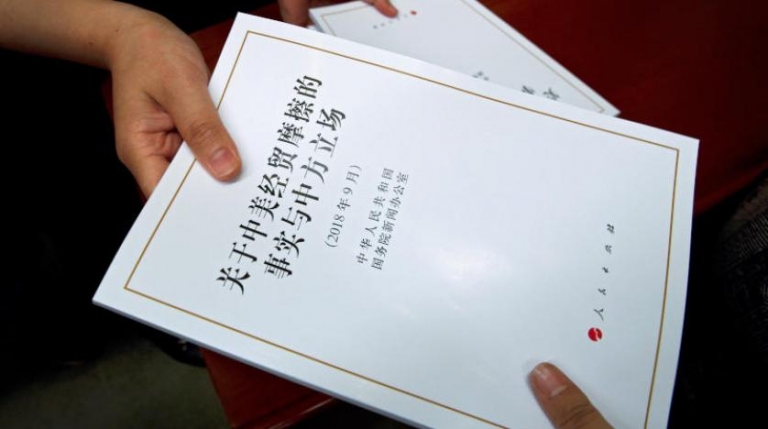 关于中美经贸摩擦的
事实与中方立场
(2018 年 9 月)
中华人民共和国
国务院新闻办公室
人民出版社